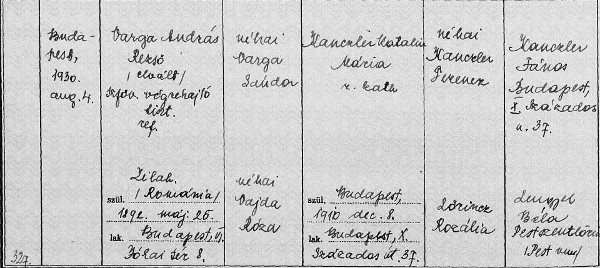 Buda-
pest,
1930.
aug. 4.
Varga András
Rezső
/elvált/
szfőv. végrehajtó
tiszt.
ref.
néhai
Varga
Sándor
Kanczler Katalin
Mária
r. kath
néhai
Kanczler
Ferencz
Kanczler
János
Budapest,
X. Százados
u. 37.
Zilah.
szül. /Románia/
1892. máj. 25.
lak. Budapest, VI.
Jókai tér 8.
néhai
Vajda
Róza
szül. Budapest,
1910 dec. 8.
lak. Budapest, X.
Százados út 37.
Lőrincz
Rozália
Lengyel
Béla
Pestszentlőrinc
/Pest vm/
329.